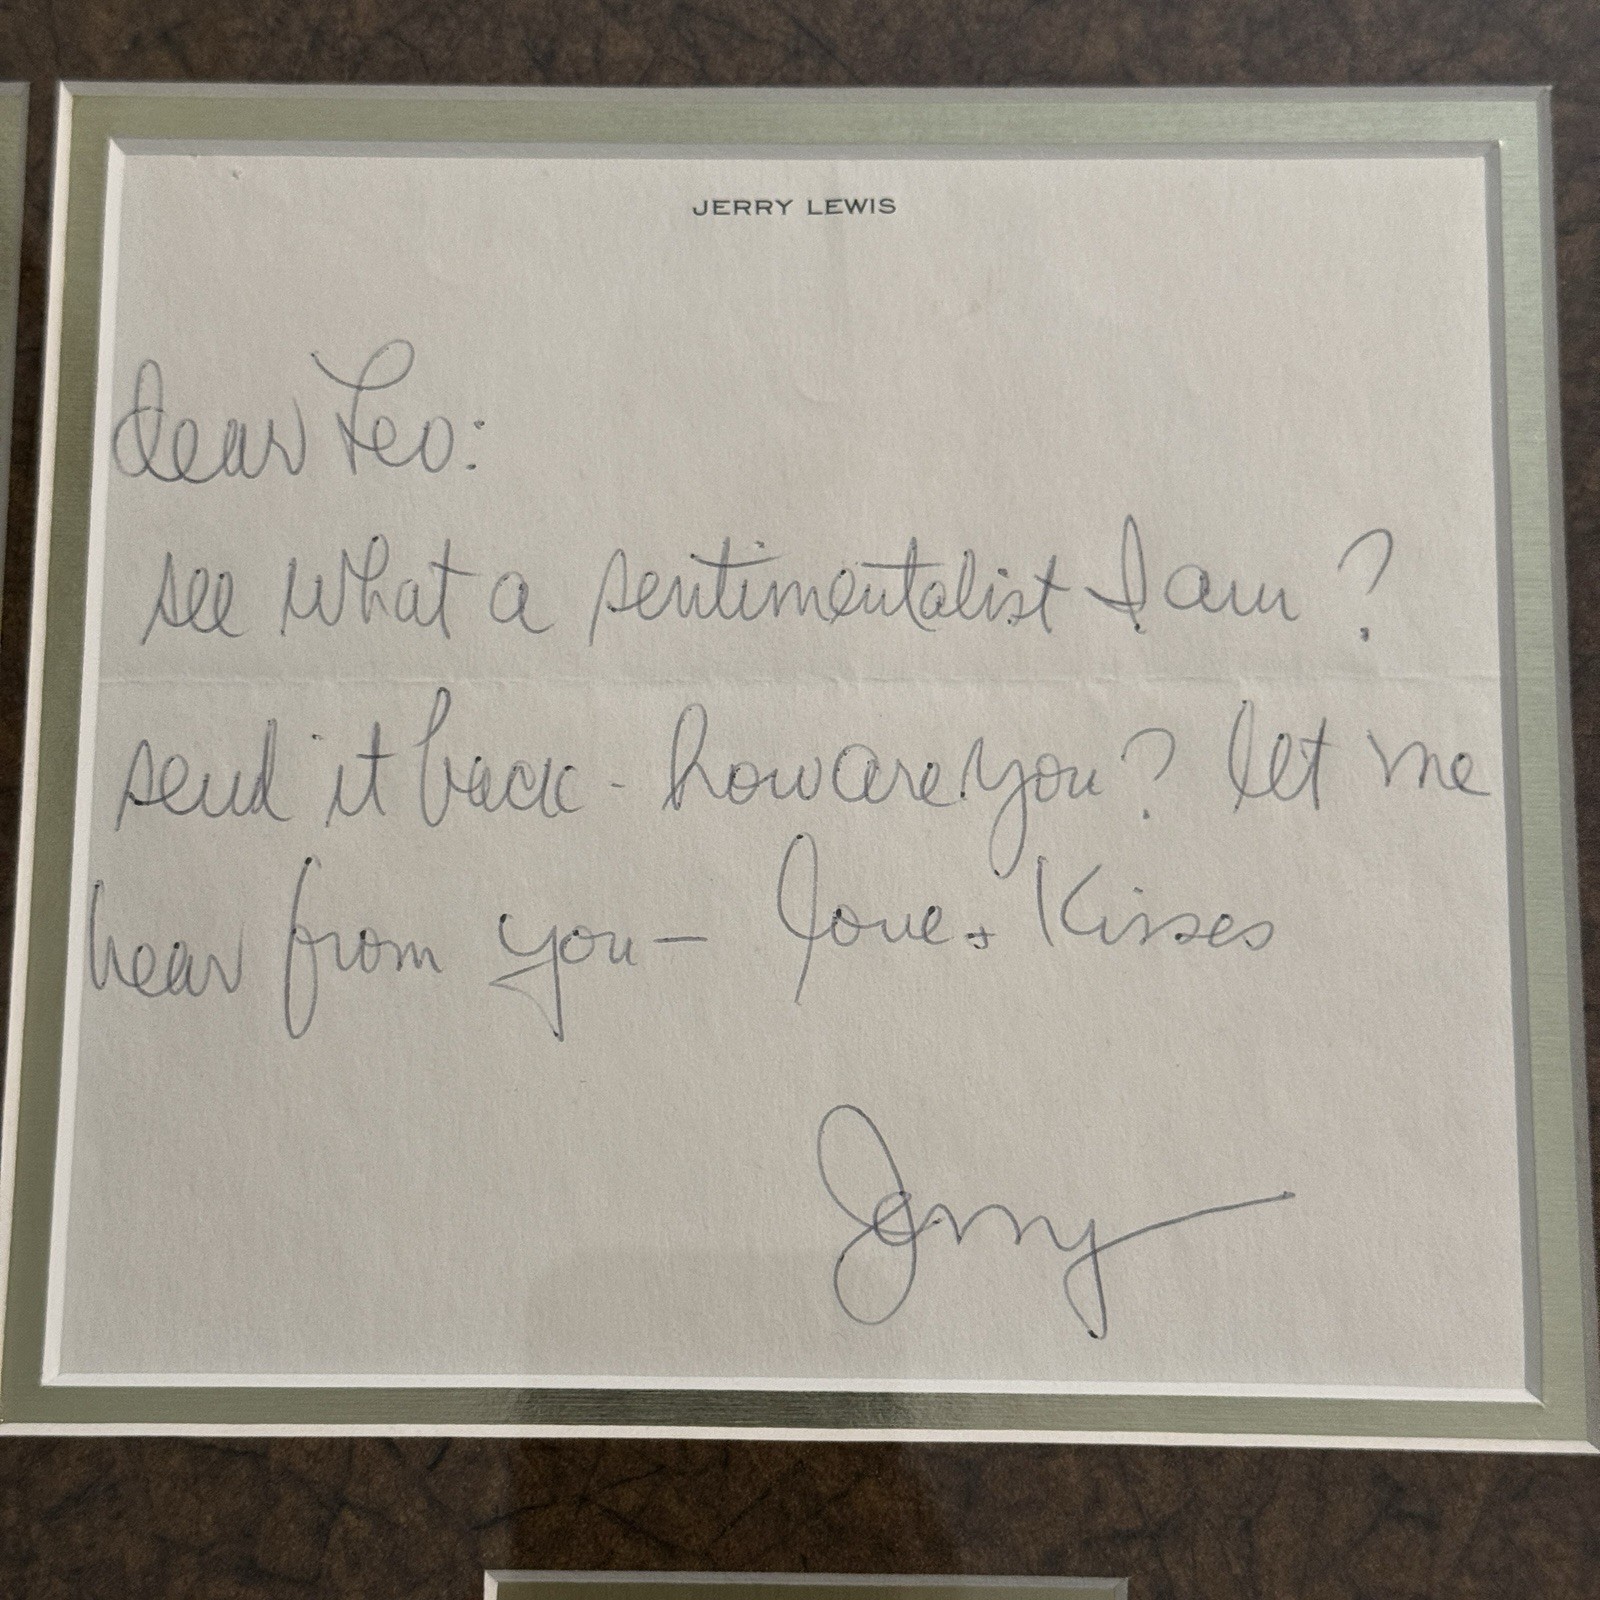 JERRY LEWIS
dear Leo:
see what a sentimentalist I am?
send it back - how are you? let me
hear from you — love + kisses
Jerry